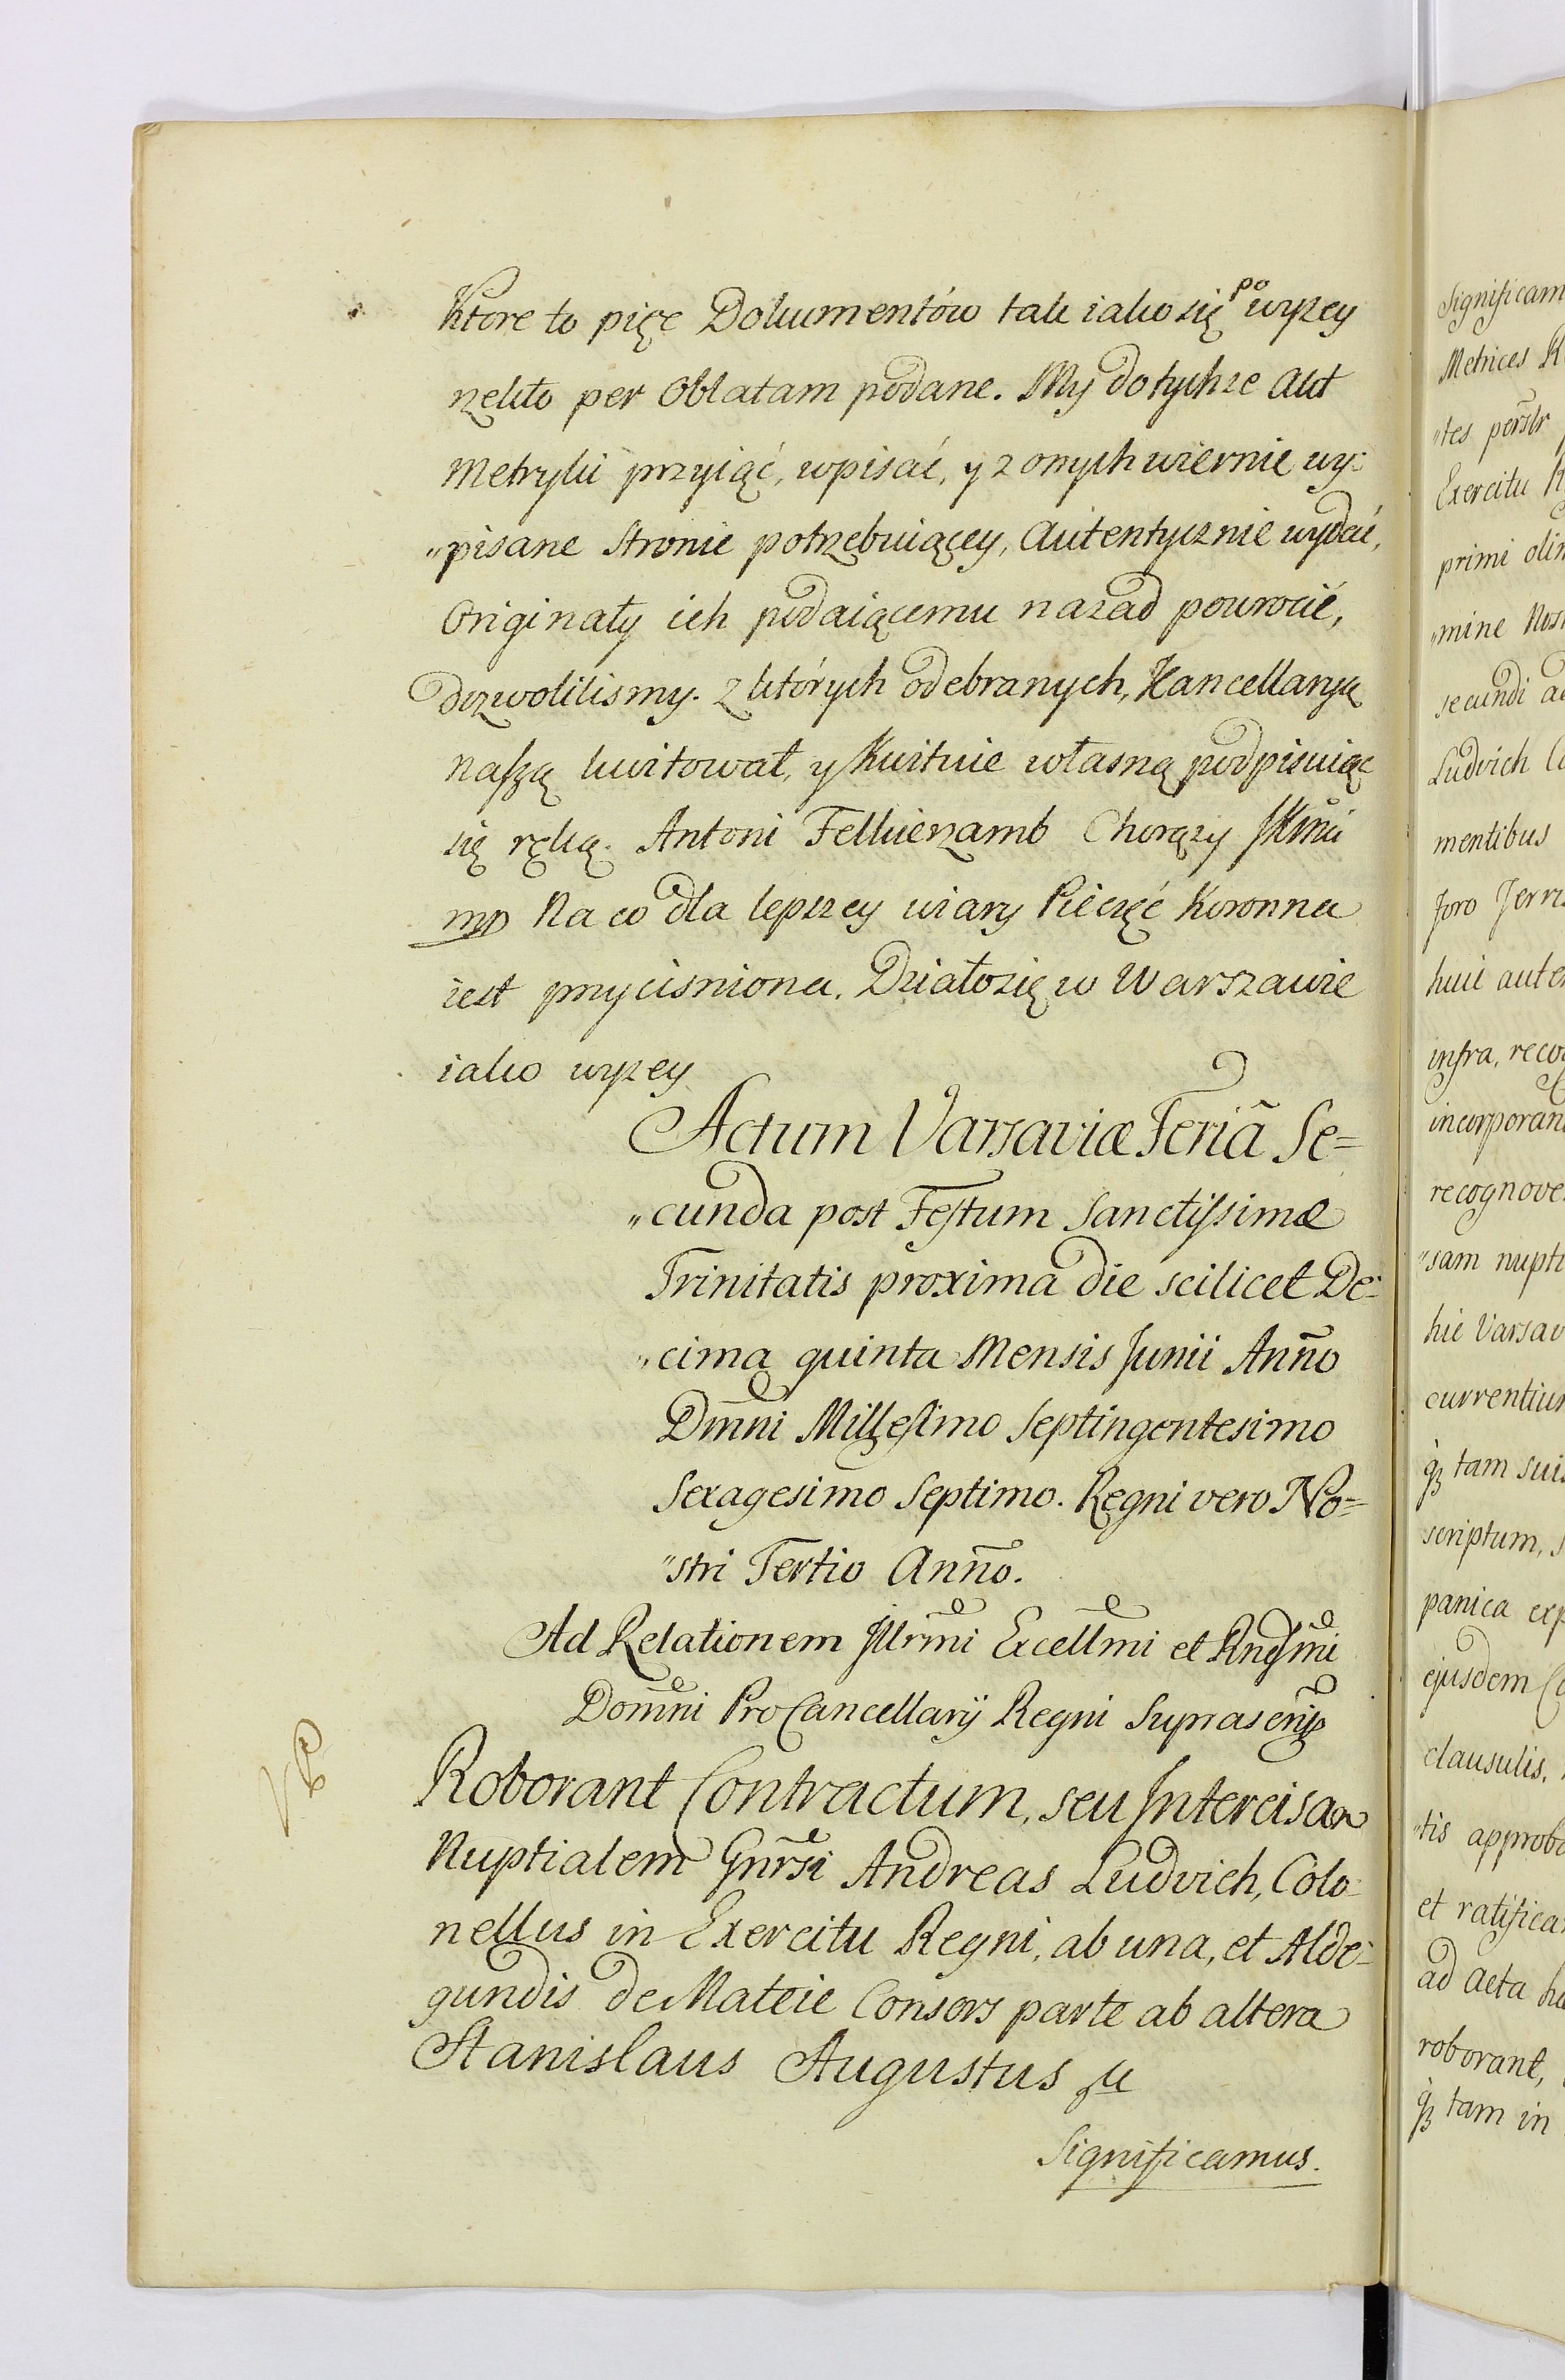 Ktore to pięc Dokumentów tak iako się powyzey
rzekło per Oblatam podane. My do tychze Akt
Metryki przyiąć, wpisać, y z onych wiernie wy:
"pisane Stronie potrzebuiącey, Autentycznie wydać,
Originały ich podaiącemu nazad powrocić,
dozwolilismy. Z których odebranych, Kancellaryą
naszą kwitował, y Kwituie własną podpisuiąc
się ręką. Antoni Felkierzamb Chorązy
mp Na co dla lepszey wiary Pieczęć Koronna
iest przycisniona. Działo się w Warszawie
iako wyzey
Actum Varsaviæ Feriã Se=
"cunda post Festum Sanctissimæ
Trinitatis proxima die scilicet De:
"cima quinta Mensis Junii Anño
Dm̃ni Millesimo Septingentesimo
Sexagesimo Septimo. Regni vero No=
"stri Tertio Anño.
Ad Relationem Jllrm̃i Excellm̃i et Rndsm̃i
Dom̃ni ProCancellarÿ Regni
Roborant Contractum, seu Intercisam
Nuptialem Gnrs̃i Andreas Ludvich, Colo:
nellus in Exercitu Regni, ab una, et Alde:
gundis de Mateie Consors parte ab altera
Stanislaus Augustus
Significamus.

Significam
Metrices R
"tes
Exercitu
primi olim
"mine Nos
secundi
Ludvich
mentibus
foro
huic
infra,
incorporan
recognove
"sam nupti
hic Varsav
currentium
tam suis
scriptum,
panica
ejusdem
clausulis,
"tis approba
et ratifica
ad Acta
roborant,
tam in